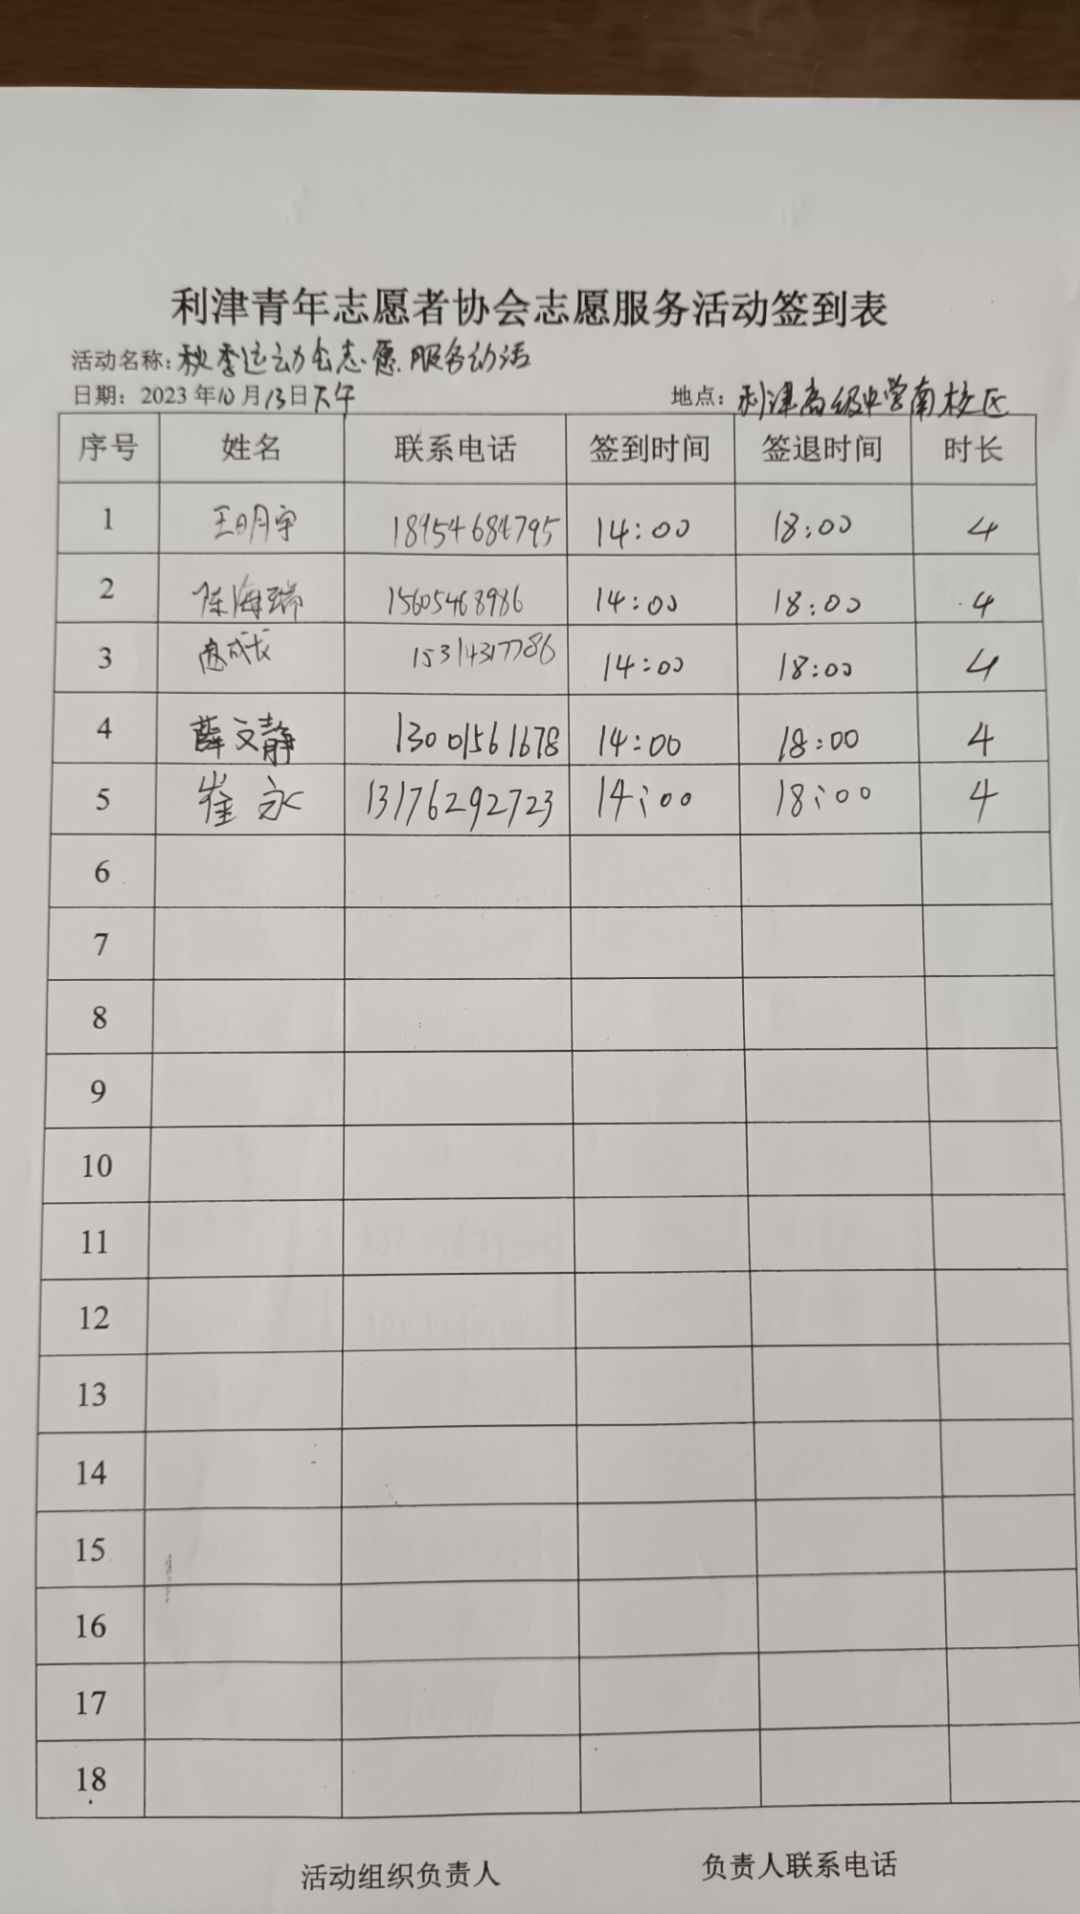 利津青年志愿者协会志愿服务活动签到表
活动名称：秋季运动会志愿服务动活
日期：2023年10月13日下午 地点：利津高级中学南校区
序号 姓名 联系电话 签到时间 签退时间 时长
1 王明宇 18954684795 14:00 18:00 4
2 陈海瑞 15605468986 14:00 18:00 4
3 成长 15314317786 14:00 18:00 4
4 薛文静 13001561678 14:00 18:00 4
5 崔永 13176292723 14:00 18:00 4
6
7
8
9
10
11
12
13
14
15
16
17
18
活动组织负责人 负责人联系电话